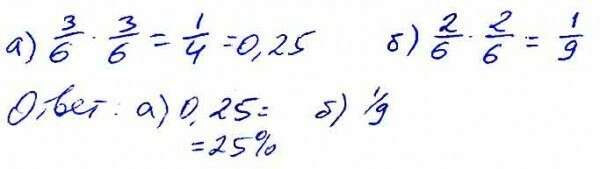 а) 3/6 · 3/6 = 1/4 = 0,25 б) 2/6 · 2/6 = 1/9
Ответ: а) 0,25 = б) 1/9
= 25%